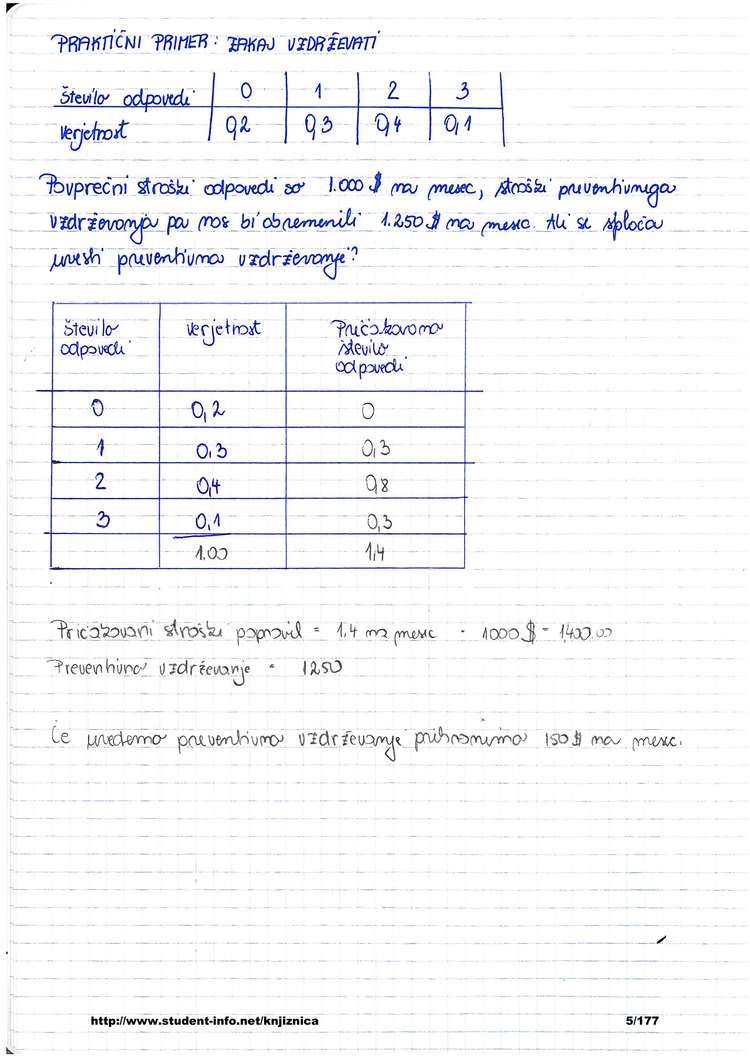 PRAKTIČNI PRIMER: ZAKAJ VZDRŽEVATI
Število odpovedi 0 1 2 3
Verjetnost 0,2 0,3 0,4 0,1
Povprečni stroški odpovedi so 1.000 $ na mesec, stroški preventivnega
vzdrževanja pa nas bi obremenili 1.250 $ na mesec. Ali se splača
uvesti preventivno vzdrževanje?
Število odpovedi verjetnost Pričakovano število odpovedi
0 0,2 0
1 0,3 0,3
2 0,4 0,8
3 0,1 0,3
1.00 1,4
Pričakovani stroški popravil = 1.4 na mesec · 1000 $ = 1400.00
Preventivno vzdrževanje = 1250
Če uvedemo preventivno vzdrževanje prihranimo 150 $ na mesec.
http://www.student-info.net/knjiznica 5/177